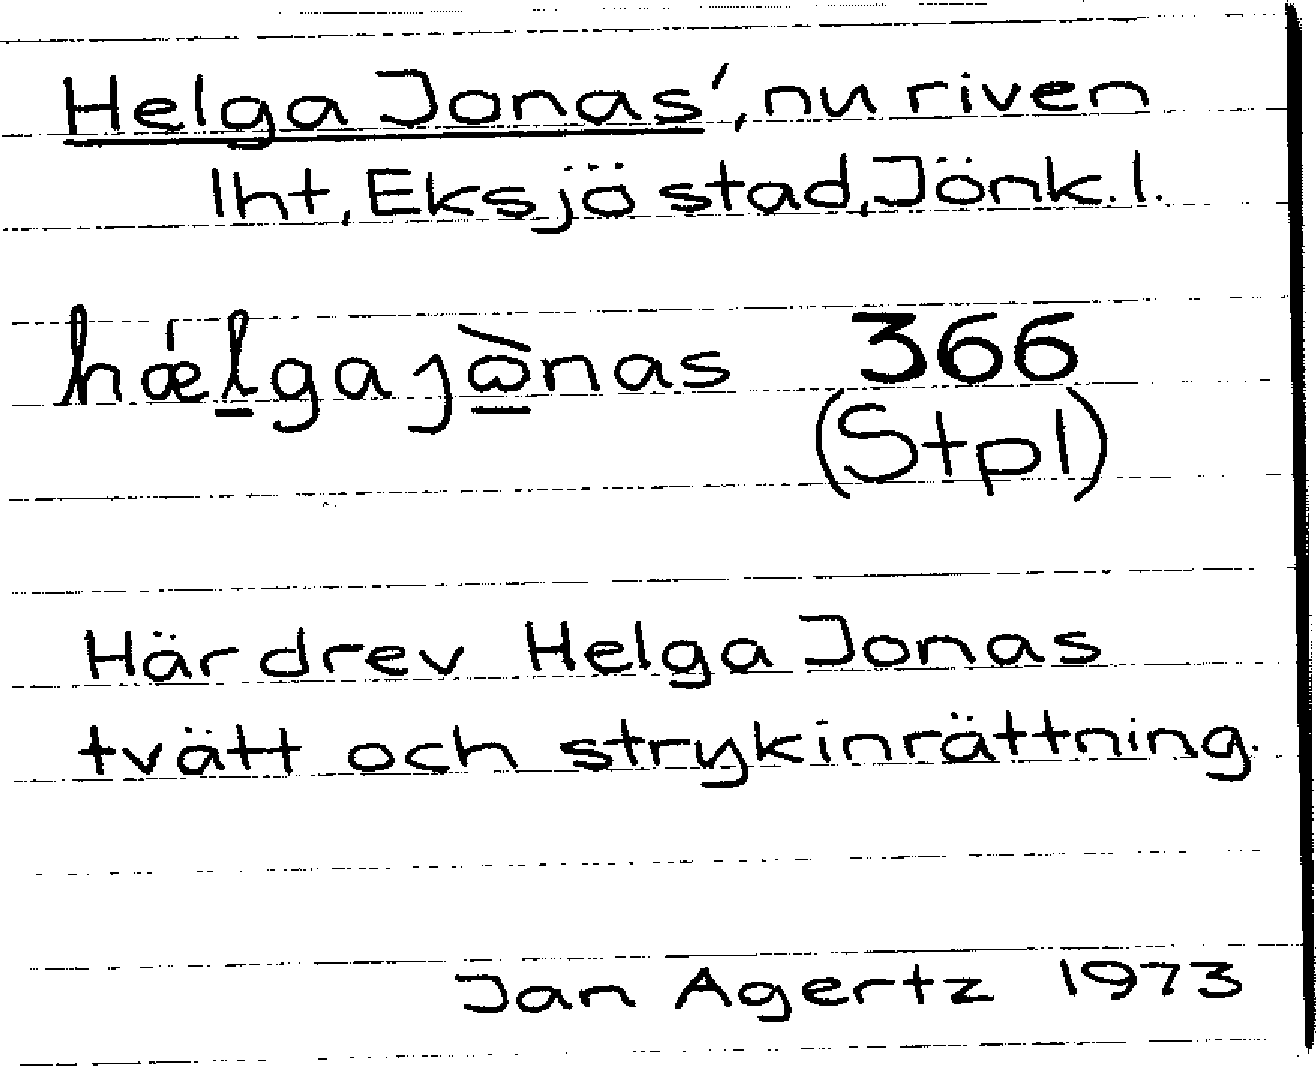 Helga Jonas', nu riven
lht, Eksjö stad, Jönk. l.
hæ̍l̲gajὼ̲nas 366
(Stpl)
Här drev Helga Jonas
tvätt och strykinrättning.
Jan Agertz 1973